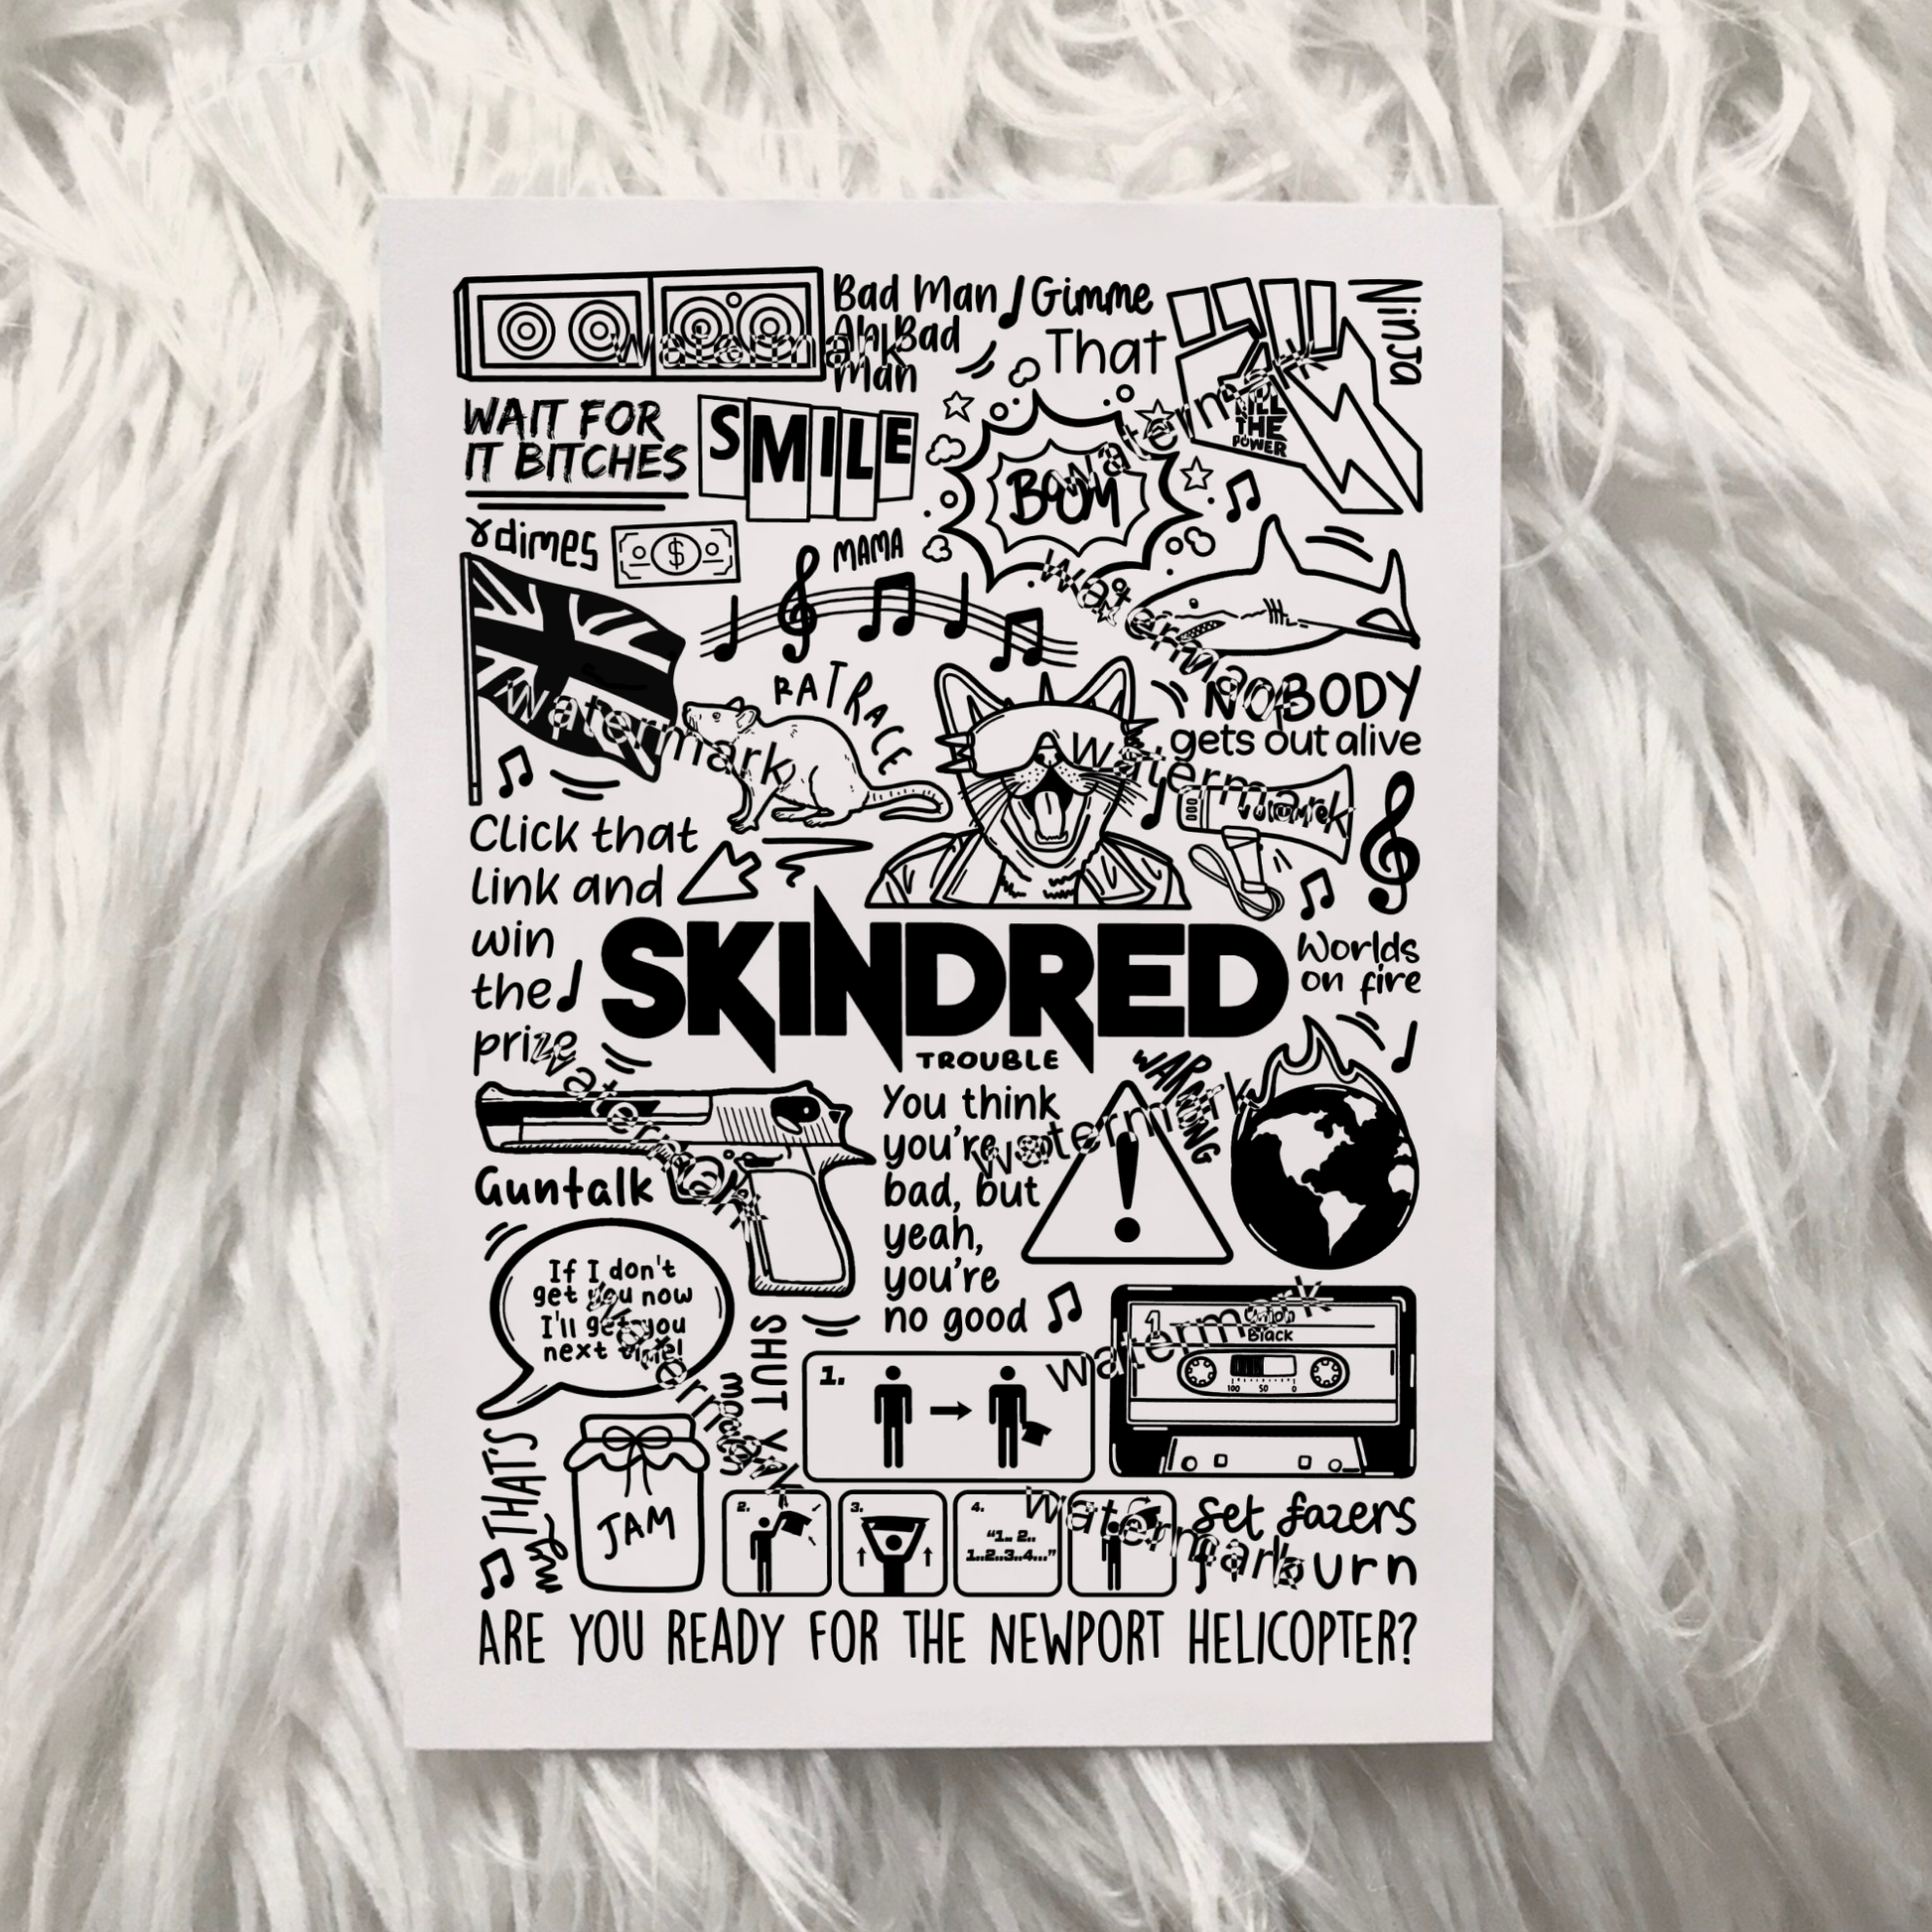 Bad Man
Ah Bad
Man
Gimme
That
Ninja
WAIT FOR
IT BITCHES
SMILE
THE
POWER
BOOM
dimes
$
MAMA
RATRACE
NOBODY
gets out alive
Click that
link and
win
the
prize
SKINDRED
TROUBLE
Worlds
on fire
WARNING
Guntalk
You think
you're
bad, but
yeah,
you're
no good
If I don't
get you now
I'll get you
next time!
SHUT Y
1
Union
Black
100 50 0
1.
THAT'S
my
JAM
2.
3.
4.
"1.. 2..
1..2..3..4..."
Set fazers
burn
ARE YOU READY FOR THE NEWPORT HELICOPTER?
watermark
watermark
watermark
watermark
watermark
watermark
watermark
watermark
watermark
watermark